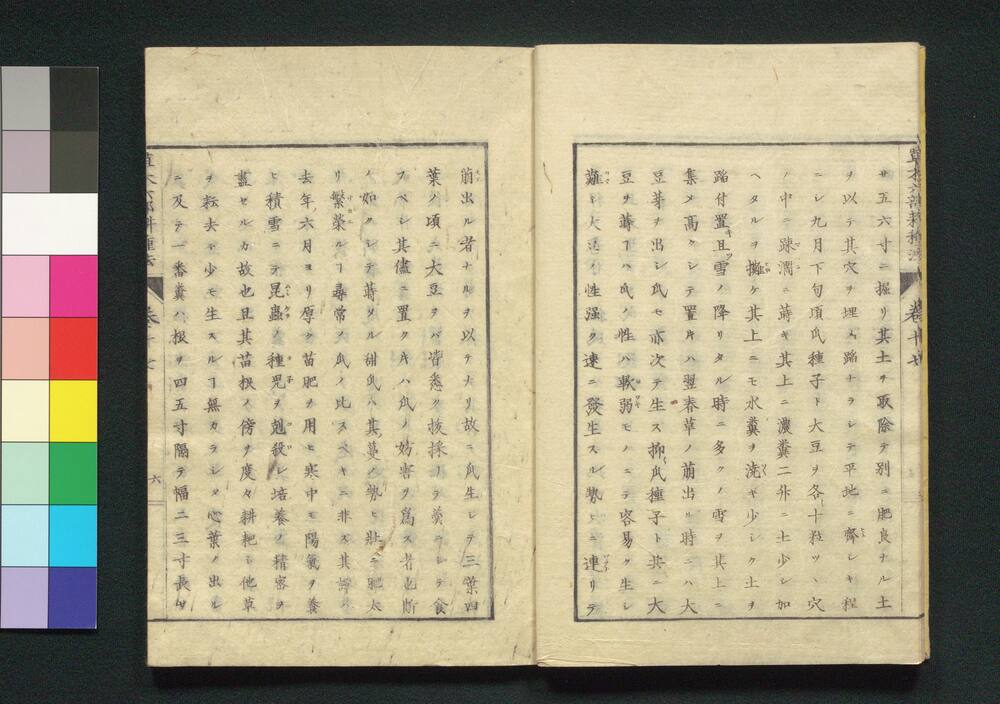 草木六部耕種法
卷十七
サ五六寸ニ掘リ其土ヲ取除テ別ニ肥良ナル土
ヲ以テ其穴ヲ埋メ蹈ナラシテ平地ニ齊シキ程
ニシ九月下旬頃瓜種子ト大豆ヲ各十粒ツヽ穴
ノ中ニ踈濶ニ蒔キ其上ニ濃糞二升ニ土少シ加
ヘタルヲ擁ケ其上ニモ水糞ヲ澆ギ少シク土ヲ
蹈付置キ且ツ雪ノ降リタル時ニ多クノ雪ヲ其上ニ
集メ高クシテ置片ハ翌春草ノ萠出ル時ニハ大
豆芽ヲ出シ瓜モ亦次テ生ス抑瓜種子ト共ニ大
豆ヲ蒔ヿハ瓜ノ性ハ軟弱モノニテ容易ク生シ
難ク大豆ノ性强ク速ニ發生スル勢ヒニ連リテ
萠出ル者ナルヲ以テナリ故ニ瓜生シテ三葉四
葉ノ頃ニ大豆ヲバ皆悉ク拔採リテ羮ニシテ食
フベシ其儘ニ置ク片ハ瓜ノ妨害ヲ爲ス者也斯
ノ如クシテ蒔タル甜瓜ハ其蔓ノ勢ヒ壯ニ肥太
リ繁榮ルヿ尋常ノ瓜ノ比スベキニ非ズ其譯ハ
去年六月ヨリ厚ク苗肥ヲ用ヒ寒中モ陽氣ヲ養
ヒ積雪ニテ昆蟲ノ種子ヲ剋殺シ培養ノ精密ヲ
盡セルカ故也且其苗根ノ傍ヲ度々耕耙シ他草
ヲ耘去テ少モ生スルヿ無カラシメ心葉ノ出ル
ニ及テ一番糞ハ根ヲ四五寸隔テ幅二三寸長サ
卷十七
六